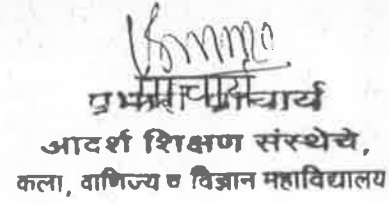 प्रभारी प्राचार्य
आदर्श शिक्षण संस्थेचे,
कला, वाणिज्य व विज्ञान महाविद्यालय